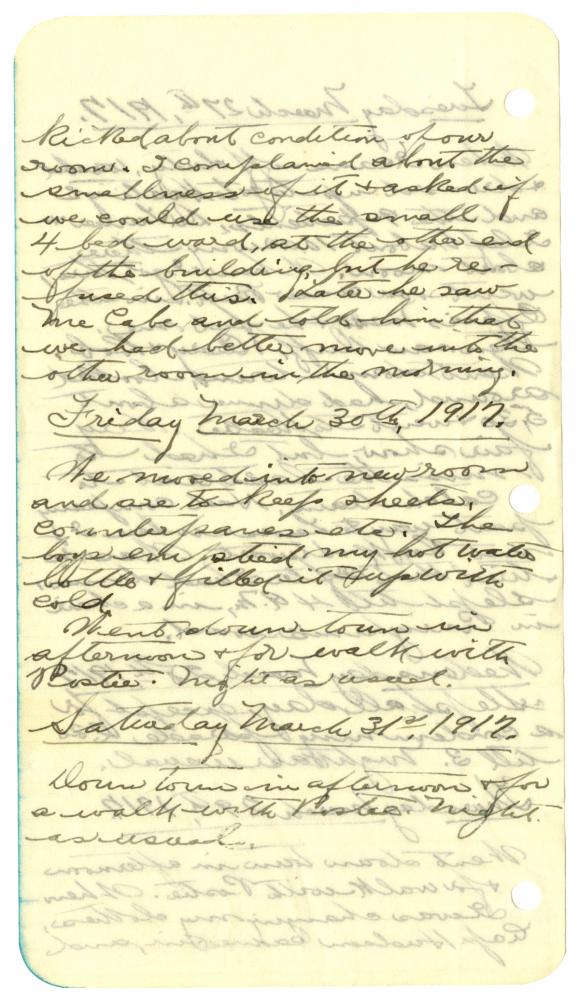 kicked about condition of our
room. I complained about the
smallness of it & asked if
we could use the small
4 bed ward, at the other end
of the building, but he re-
fused this. Later he saw
McCabe and told him that
we had better move into the
other room in the morning.
Friday March 30th, 1917.
We moved into new room
and are to keep sheets,
counterpanes etc. The
boys emptied my hot water
bottle & filled it up with
cold
Went down town in
afternoon & for walk with
Postie. Night as usual.
Saturday March 31st, 1917.
Down town in afternoon & for
a walk with Postie. Night
as usual.